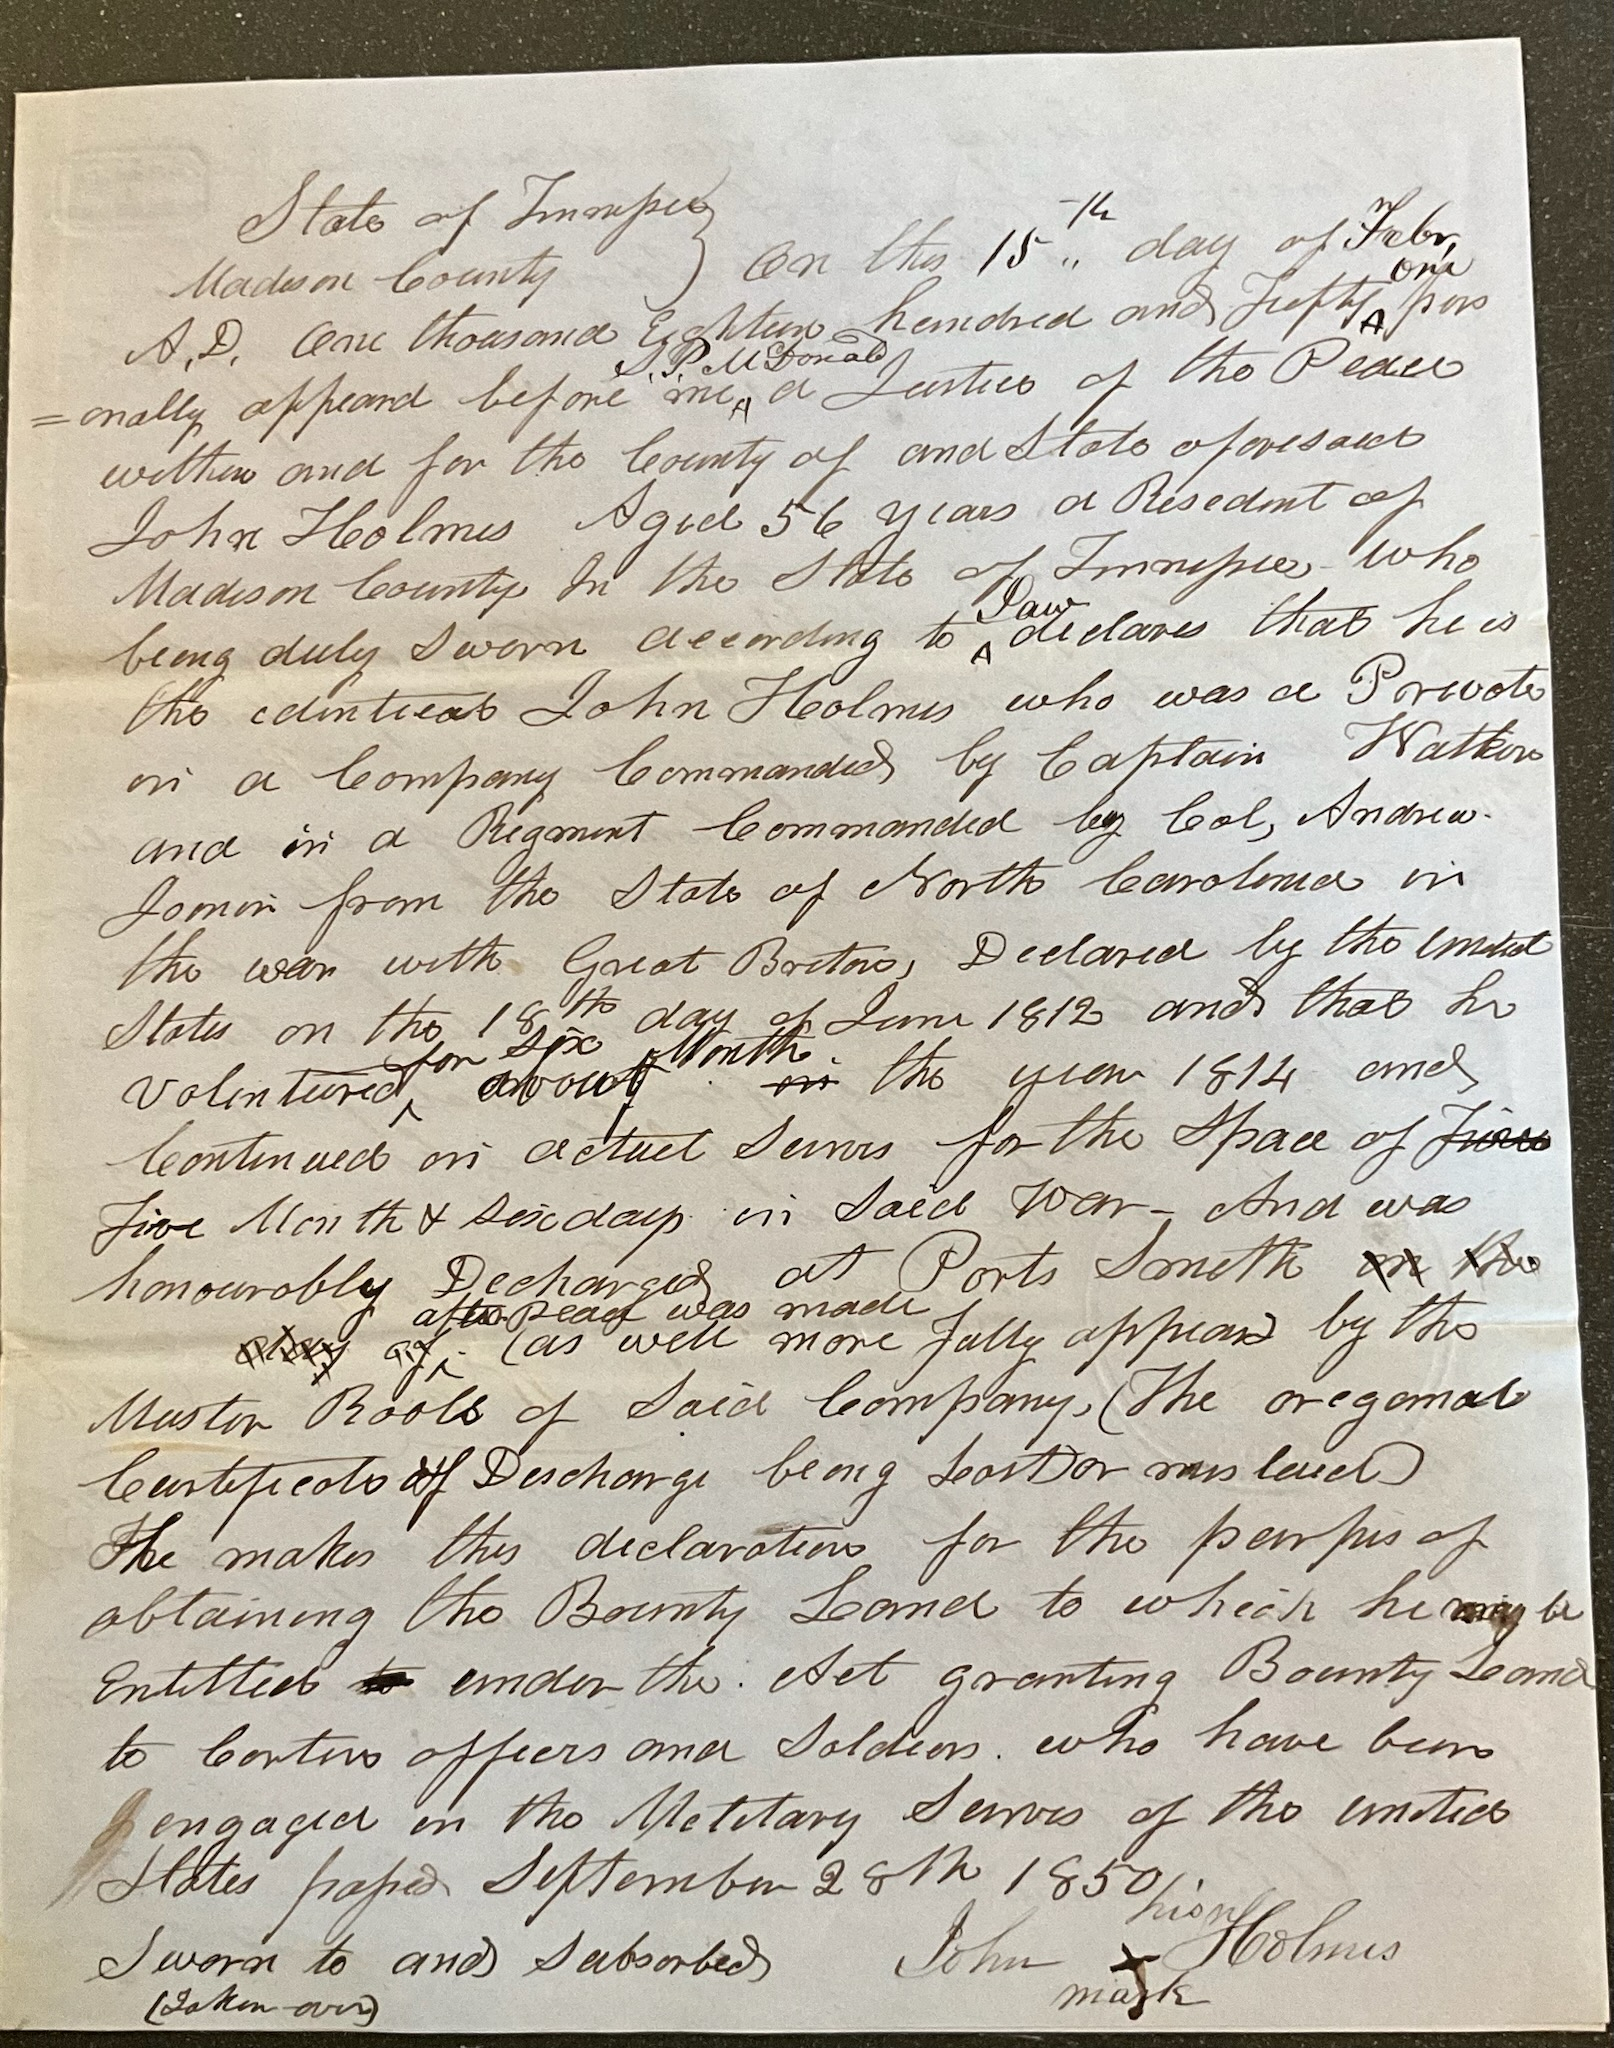 State of Tennessee
Madison County } On this 15th day of Febr,
A.D. One thousand Eighteen hundred and Fifty one pers
=onally appeard before me S. P. McDonald a Justice of the Peace
within and for the County of and State aforesaid
John Holmes Aged 56 years a Resedent of
Madison County In the State of Tennessee who
being duly Sworn according to Law declares that he is
the identical John Holmes who was a Private
in a Company Commanded by Captain Watkins
and in a Regment Commanded by Col, Andrew
from the State of North Carolina in
the war with Great Briton, Declared by the United
States on the 18th day of June 1812 and that he
Volentured for Six Month about in the year 1814 and
Continued in actuel Servis for the Space of Five
Five Month & Six days in Said War - And was
honourobly Decharged at Ports Smeth on the
day of after peace was made (as well more fully appear by the
Muster Rools of Said Company, (The oregonal
Certificate of Discharge being Lost or mis laid)
He makes this declaration for the purpus of
obtaining the Bounty Land to which he may be
Entitled to under the Act granting Bounty Land
to Certin officers and Soldiers. who have been
engaged in the Meletary Servis of the united
States passed September 28th 1850.
Sworn to and Subsorbed John his X mark Holmes
(Taken over)